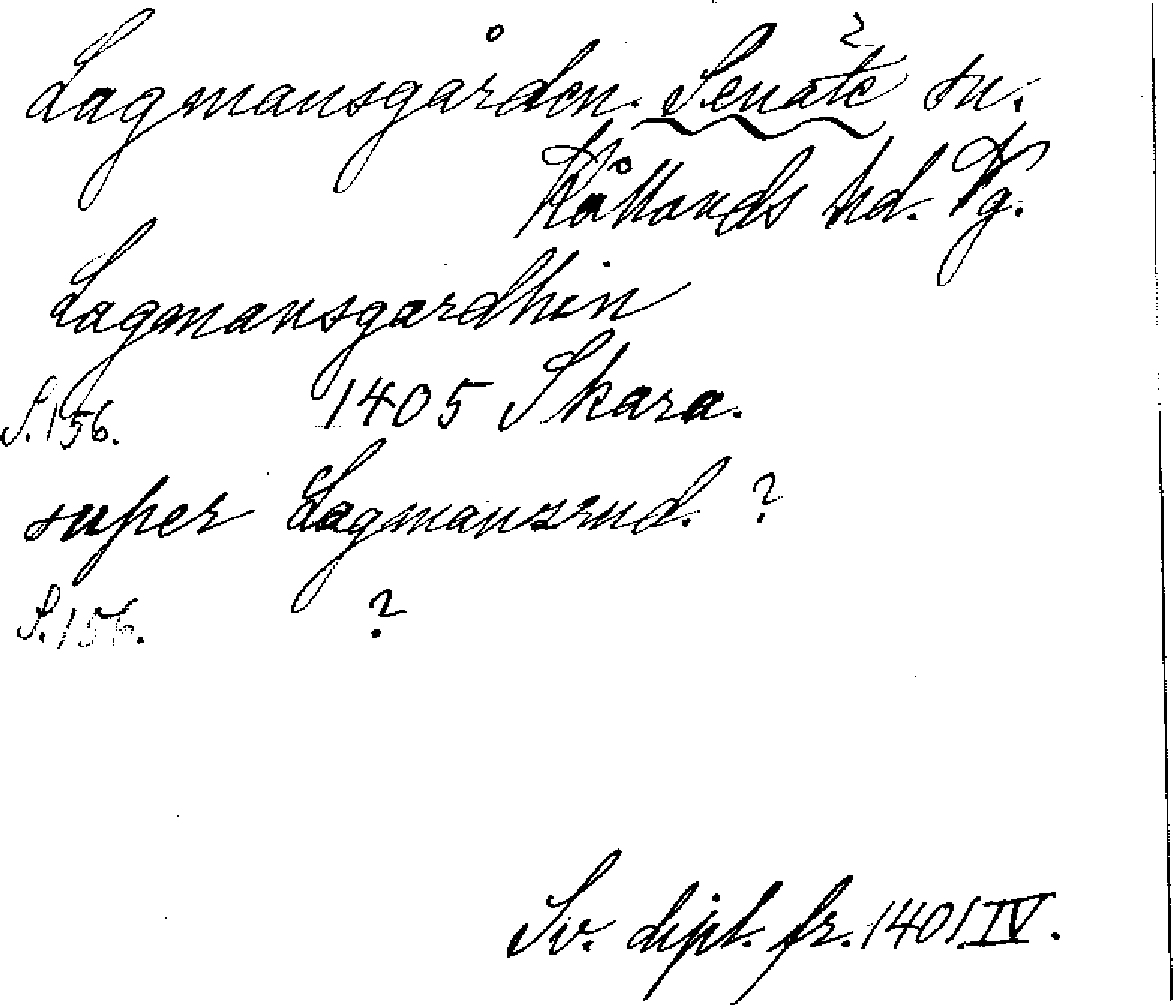 Lagmansgården. Senäte sn.
?
Kållands hd. Vg.
Lagmansgardhin
S. 156. 1405 Skara.
super Lagmansrud. ?
S. 156. ?
Sv. dipl. fr. 1401 IV.